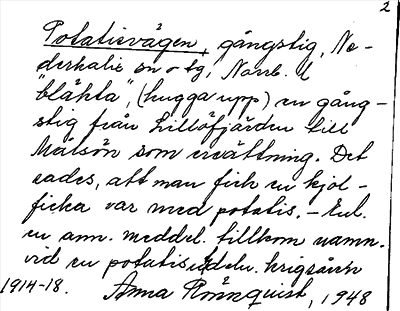 2
Potatisvägen, gångstig, Ne-
derkalix sn o tg, Norrb. l
"bläkta", (hugga upp) en gång-
stig från Lillöfjärden till
Malsön som ersättning. Det
sades, att man fick en kjol-
ficka var med potatis. – Enl.
en ann. meddel. tillkom namn.
vid en potatisutdeln. krigsåren
1914-18. Anna Rönnquist, 1948